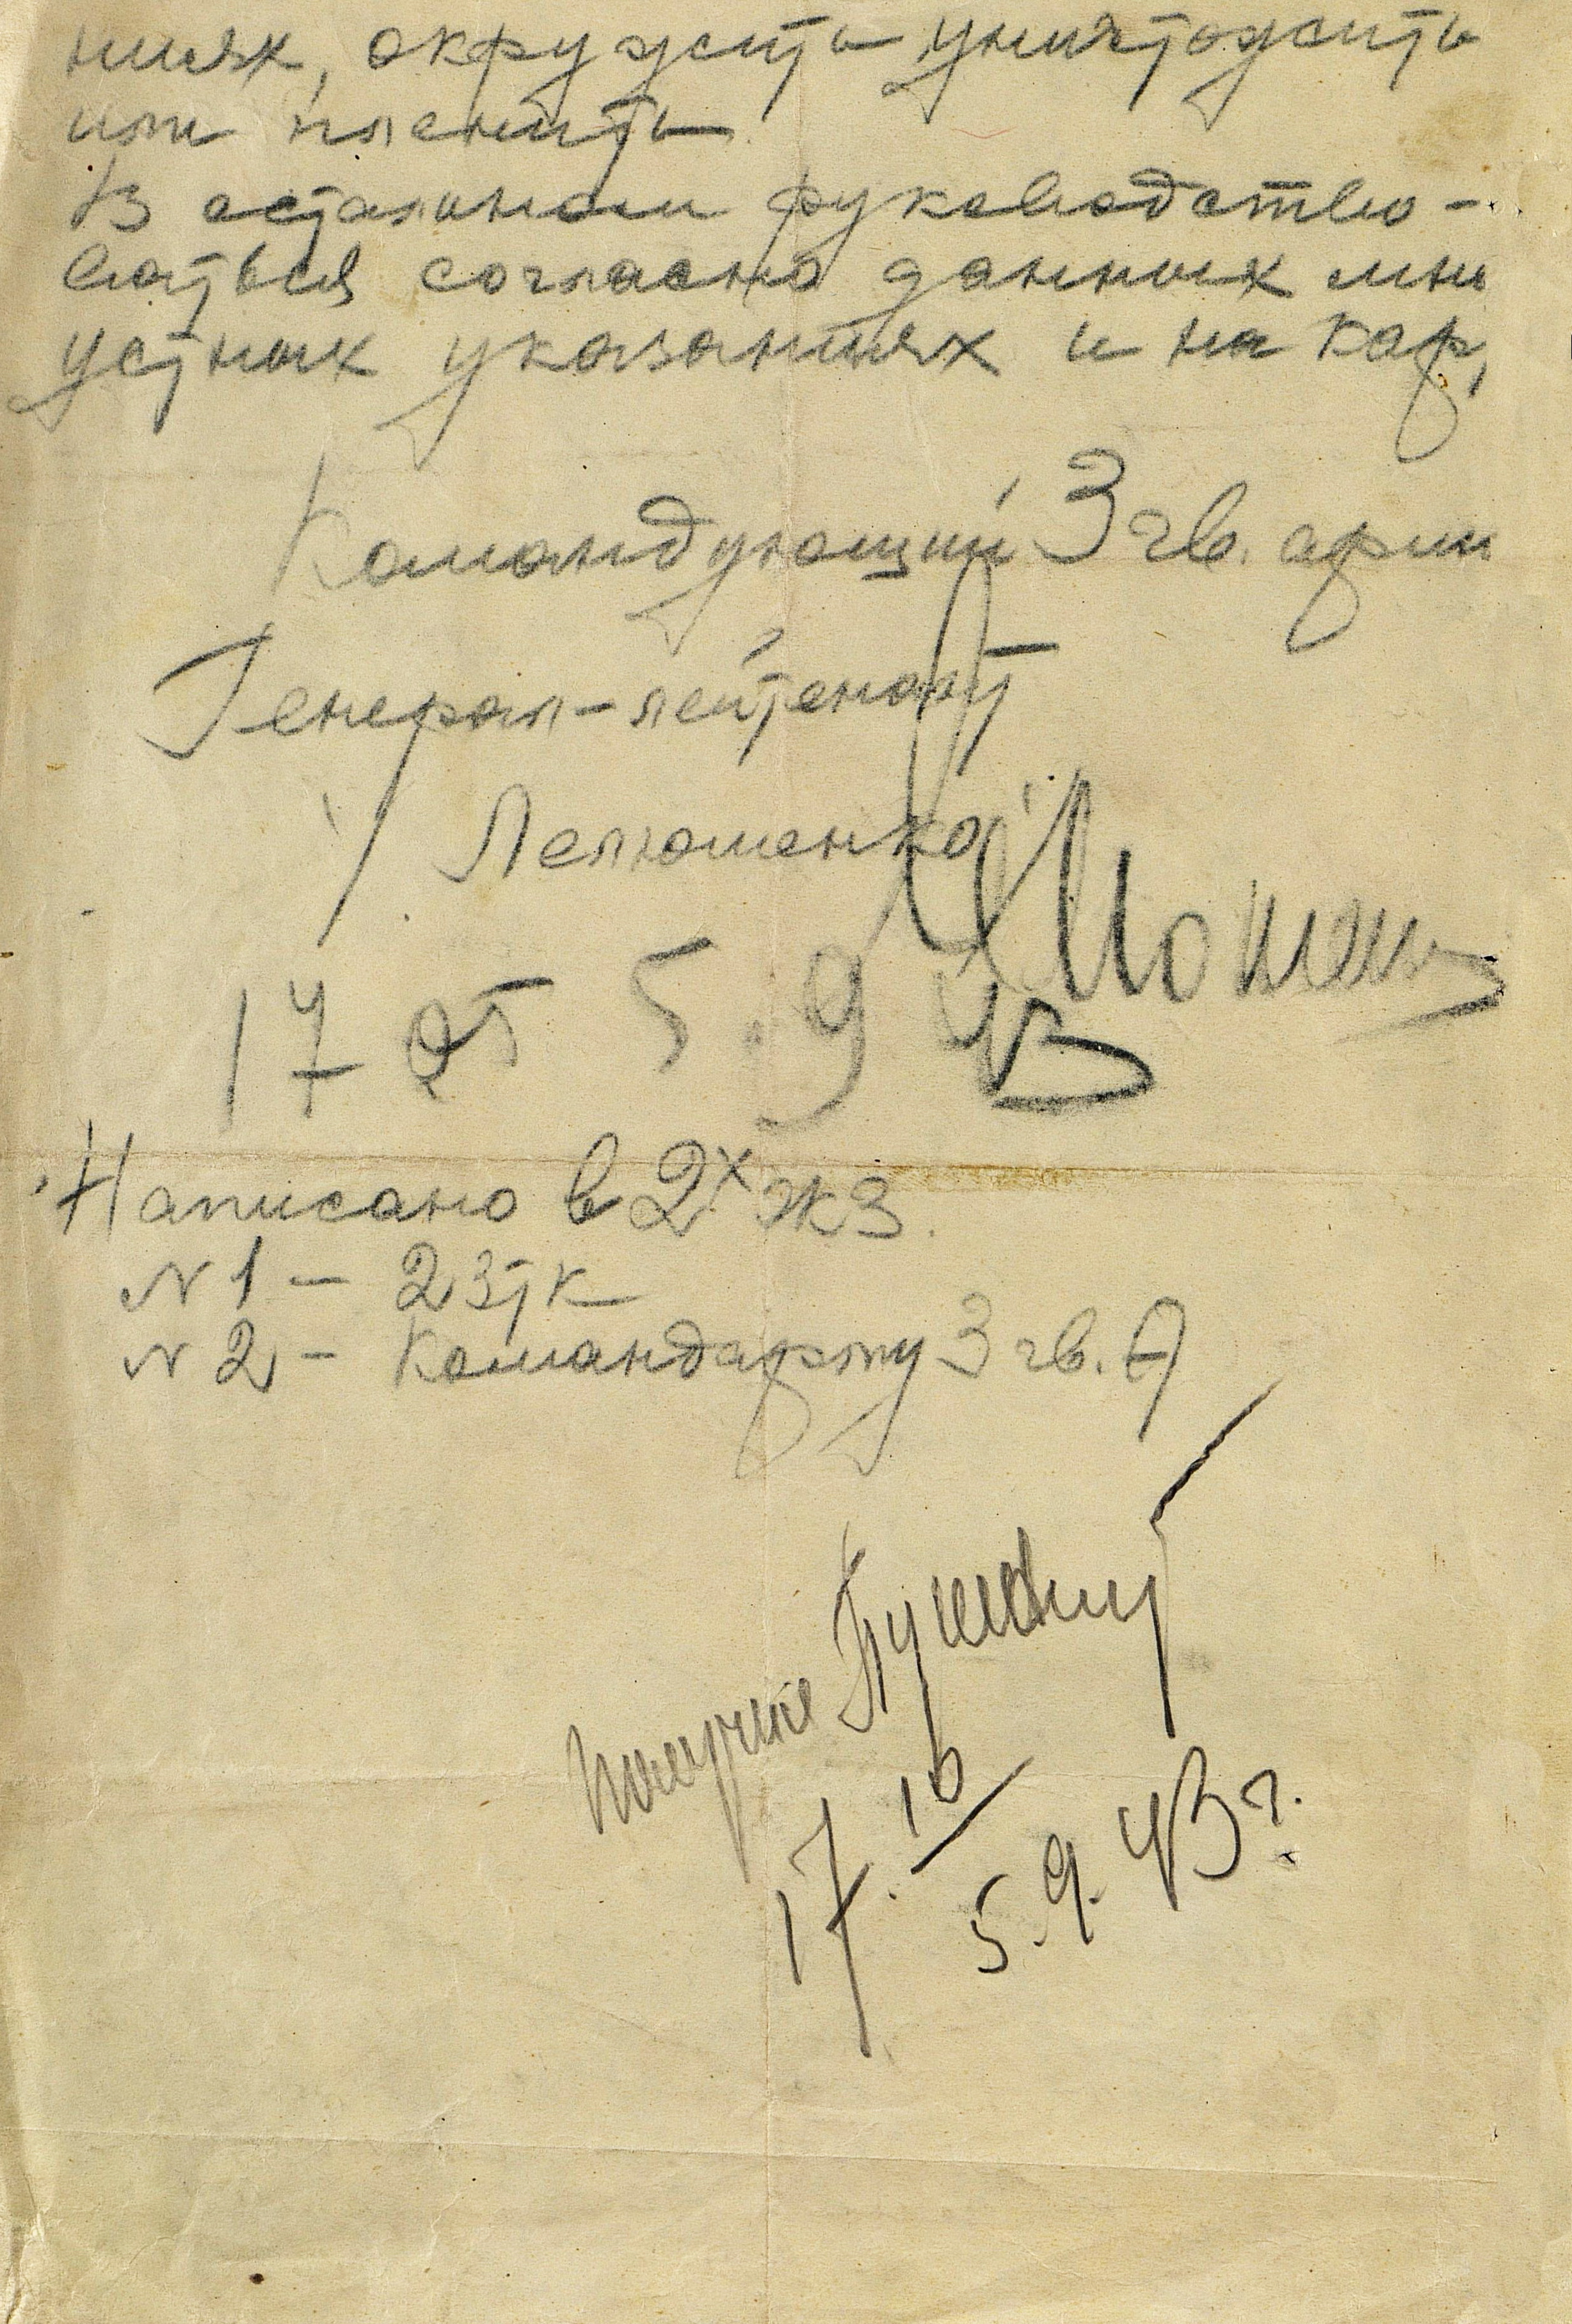 ниях, окружить уничтожить
или пленить
В остальном руководство-
ваться согласно данных мною
устных указаниях и на кар,
Командующий 3 гв. армии
Генерал-лейтенант
Лелюшенко
17 от 5.9 43
Написано в 2х экз.
N 1 – 23тк
N 2 – Командарму 3 гв. А
получил Пушкин
17.10 5.9.43 г.